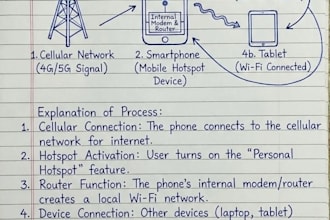 Internal
Modem &
Router
1. Cellular Network
(4G/5G Signal)
2. Smartphone
(Mobile Hotspot
Device)
4b. Tablet
(Wi-Fi Connected)
Explanation of Process:
1. Cellular Connection: The phone connects to the cellular
network for internet.
2. Hotspot Activation: User turns on the "Personal
Hotspot" feature.
3. Router Function: The phone's internal modem/router
creates a local Wi-Fi network.
4. Device Connection: Other devices (laptop, tablet)